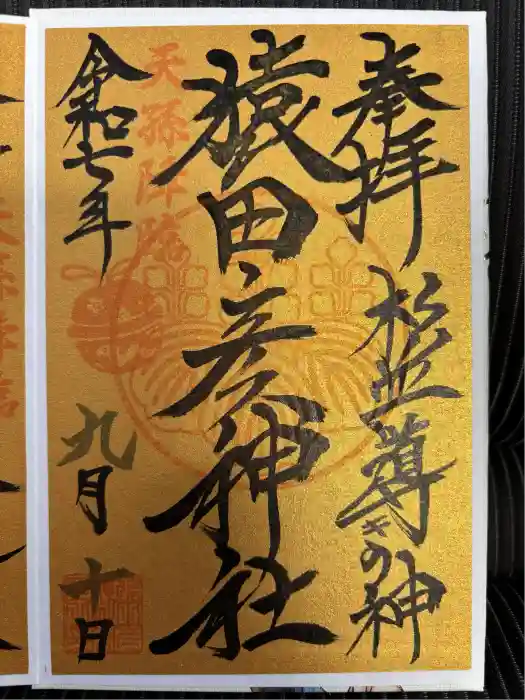 奉拝
杉並尊きの神
猿田彦神社
天孫降臨
令和七年
九月十日